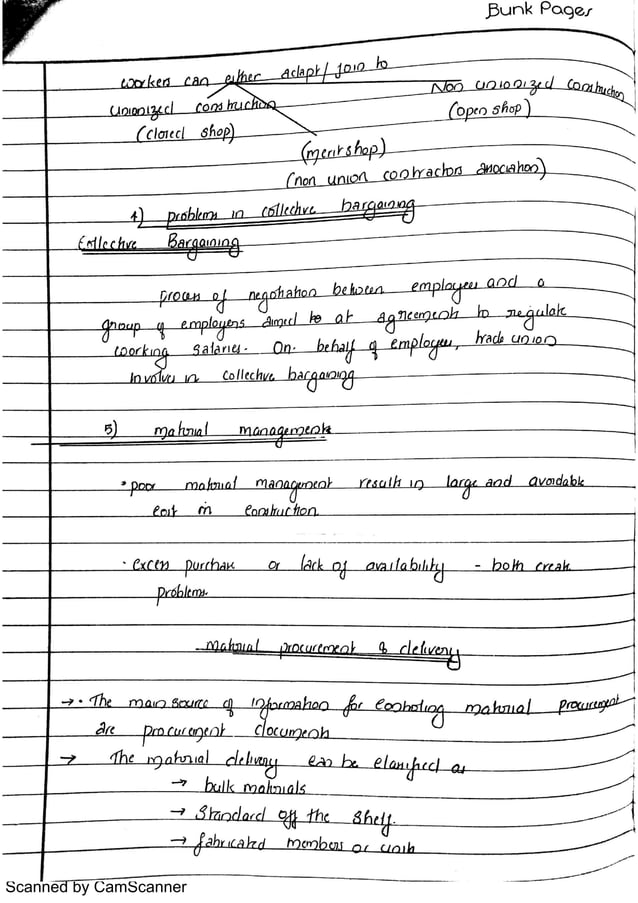 Bunk Pages
workers can either adapt / join to
Non unionized construction
unionized construction
(closed shop)
(open shop)
(merit shop)
(non union contractors association)
4) problems in collective bargaining
Collective Bargaining
process of negotiation between employees and a
group of employers aimed to at agreements to regulate
working salaries. On behalf of employees, trade union
involves in collective bargaining
5) material management
• poor material management results in large and avoidable
cost in construction
• excess purchase or lack of availability - both create
problems.
material procurement & delivery
→ • The main source of information for controling material procurement
are procurement documents
→ The material delivery can be classified as
→ bulk materials
→ Standard off the shelf.
→ fabricated members or units
Scanned by CamScanner